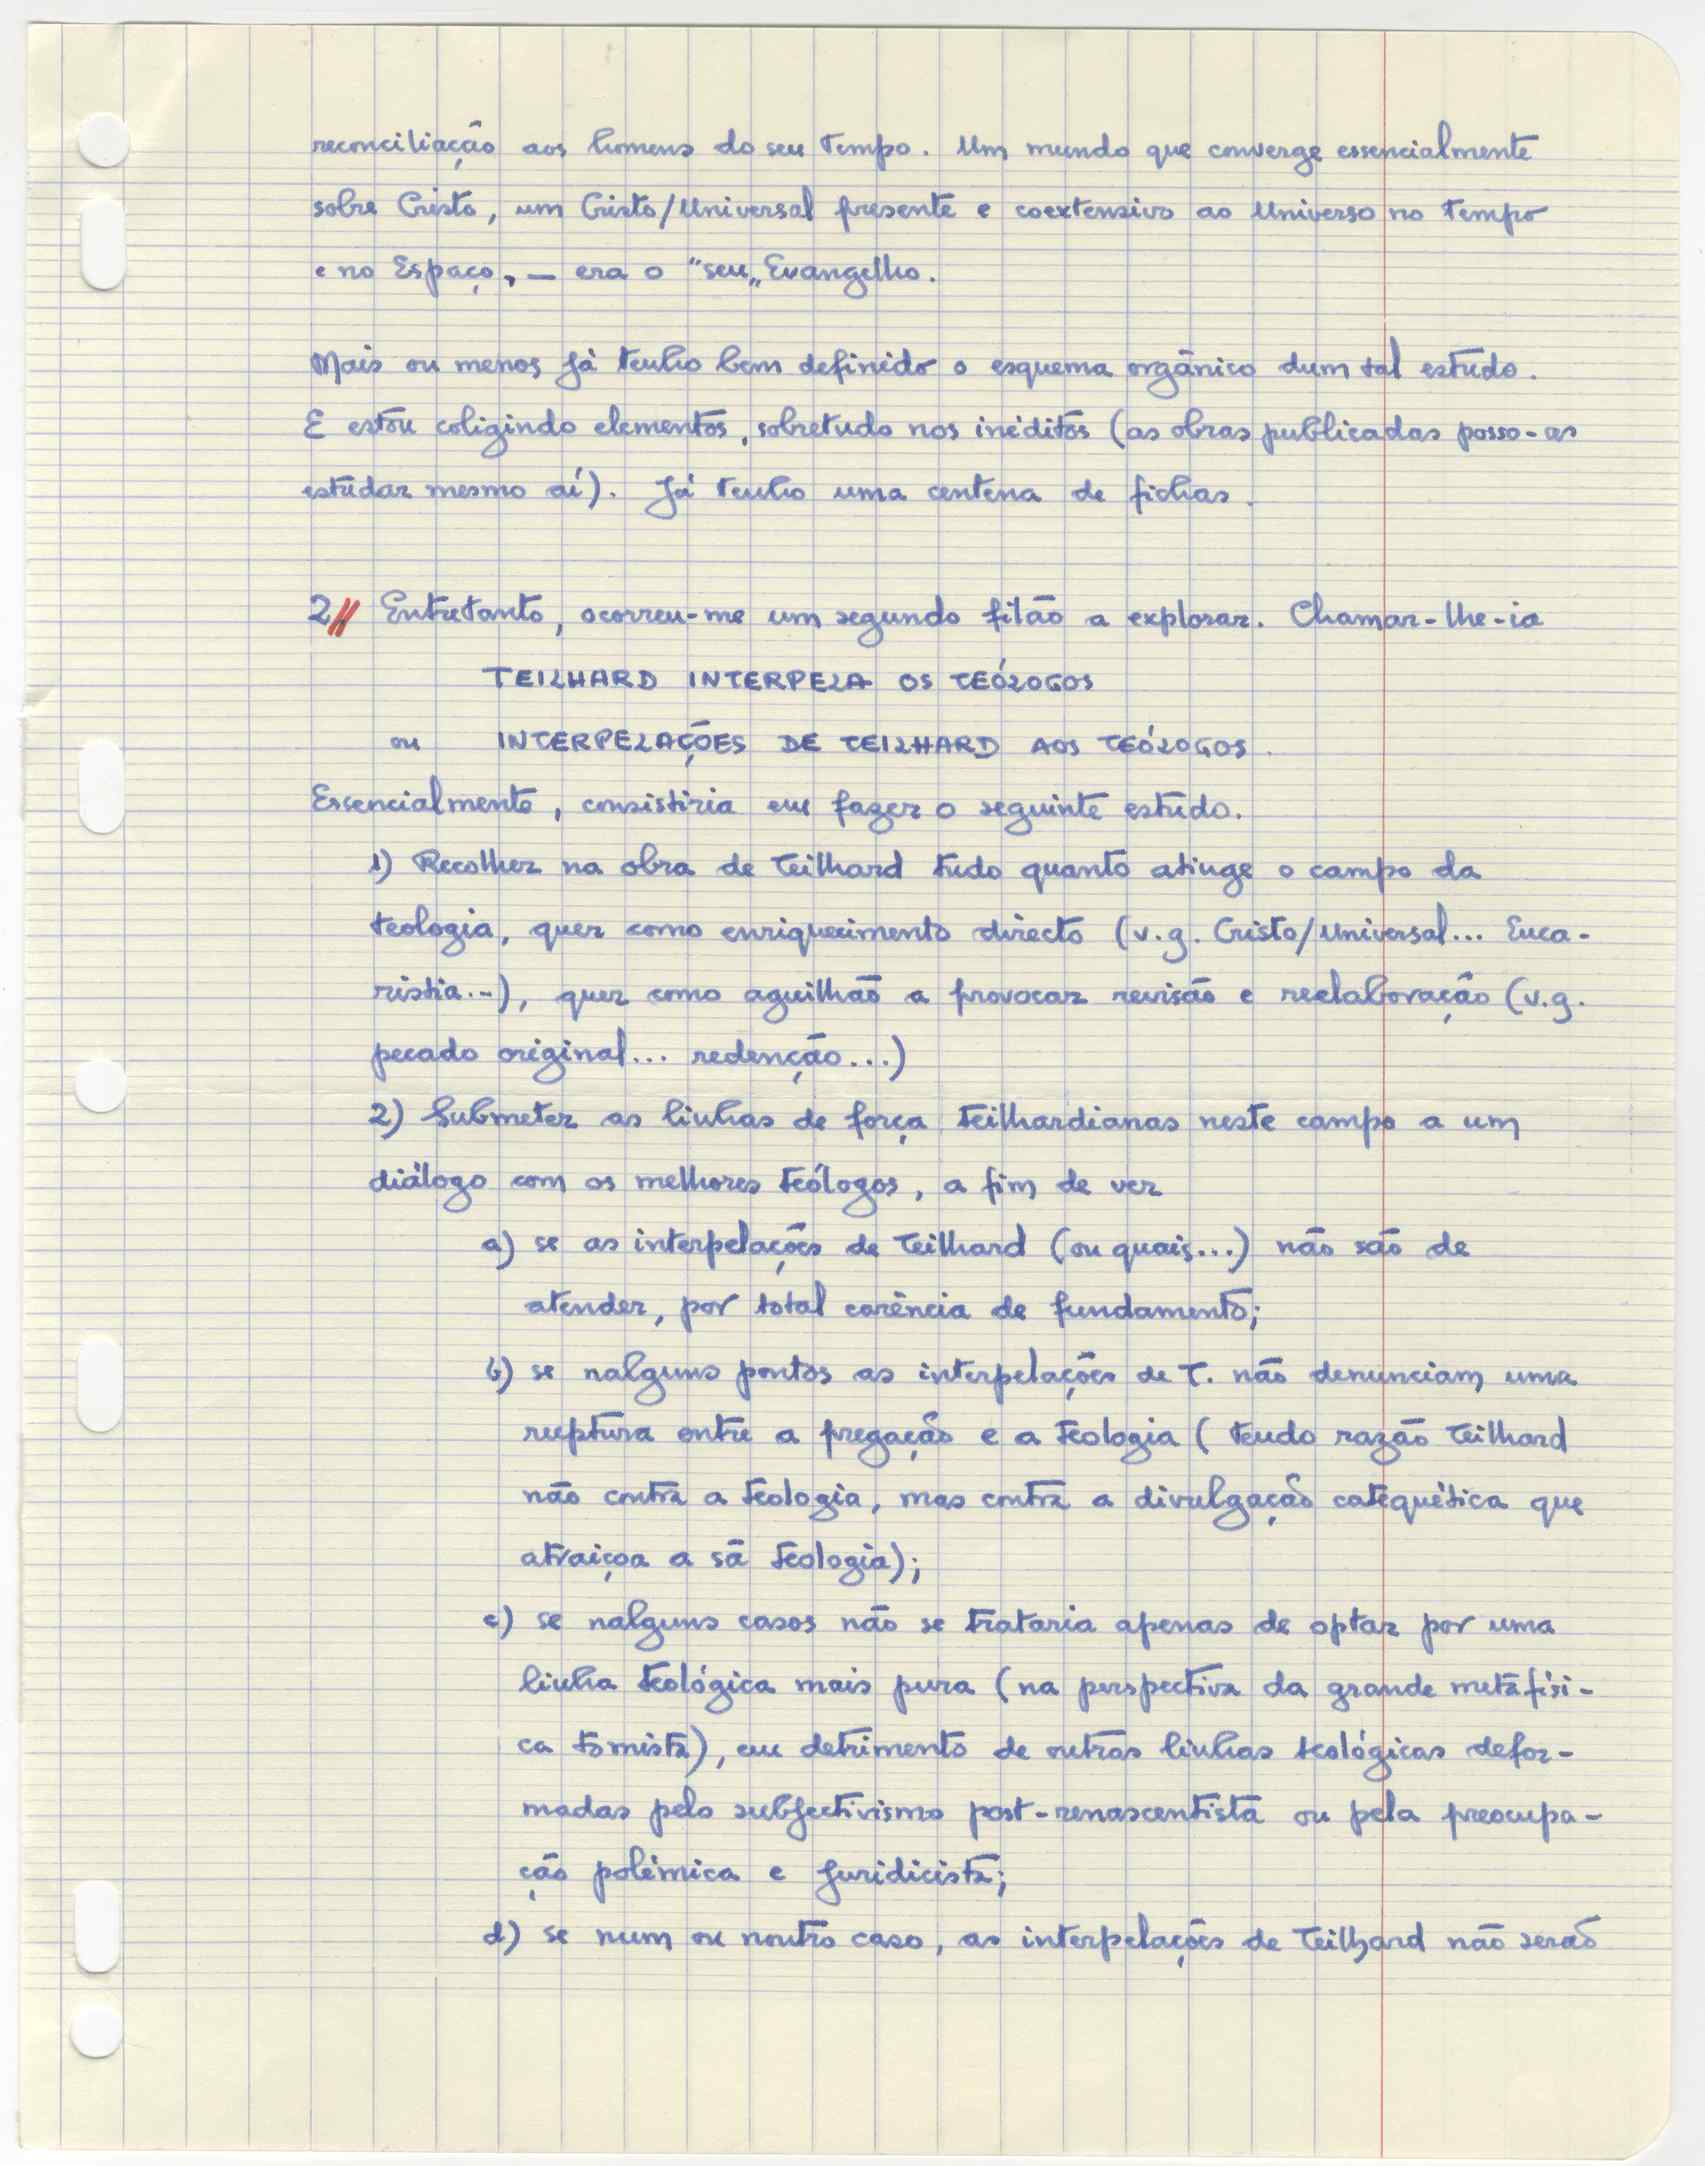 reconciliação aos homens do seu tempo. Um mundo que converge essencialmente
sobre Cristo, um Cristo/Universal presente e coextensivo ao Universo no Tempo
e no Espaço, — era o "seu„ Evangelho.
Mais ou menos já tenho bem definido o esquema orgânico dum tal estudo.
E estou coligindo elementos, sobretudo nos inéditos (as obras publicadas posso-as
estudar mesmo aí). Já tenho uma centena de fichas.
2// Entretanto, ocorreu-me um segundo filão a explorar. Chamar-lhe-ia
TEILHARD INTERPELA OS TEÓLOGOS
ou INTERPELAÇÕES DE TEILHARD AOS TEÓLOGOS.
Essencialmente, consistiria em fazer o seguinte estudo.
1) Recolher na obra de Teilhard tudo quanto atinge o campo da
teologia, quer como enriquecimento directo (v.g. Cristo/Universal... Euca-
ristia...), quer como aguilhão a provocar revisão e reelaboração (v.g.
pecado original... redenção...)
2) Submeter as linhas de força teilhardianas neste campo a um
diálogo com os melhores teólogos, a fim de ver
a) se as interpelações de Teilhard (ou quais...) não são de
atender, por total carência de fundamento;
b) se nalguns pontos as interpelações de T. não denunciam uma
ruptura entre a pregação e a teologia (tendo razão Teilhard
não contra a teologia, mas contra a divulgação catequética que
atraiçoa a sã teologia);
c) se nalguns casos não se trataria apenas de optar por uma
linha teológica mais pura (na perspectiva da grande metafísi-
ca tomista), em detrimento de outras linhas teológicas defor-
madas pelo subjectivismo post-renascentista ou pela preocupa-
ção polémica e juridicista;
d) se num ou noutro caso, as interpelações de Teilhard não serão